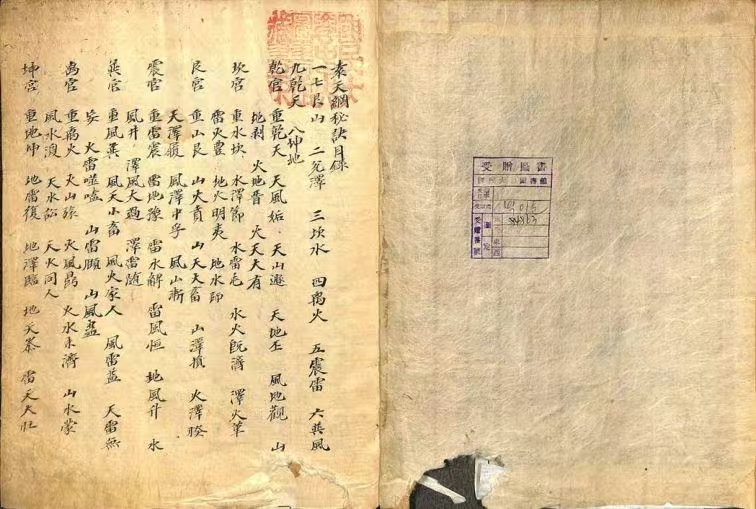 袁天綱秘訣目錄
一七艮山 二兌澤 三坎水 四离火 五震雷 六巽風
九乾天 八坤地
乾宮 重乾天 天風姤 天山遯 天地否 風地觀 山
地剥 火地晋 火天大有
坎宮 重水坎 水澤節 水雷屯 水火既濟 澤火革
雷火豊 地火明夷 地水師
艮宮 重山艮 山火賁 山天大畜 山澤損 火澤睽
天澤履 風澤中孚 風山漸
震宮 重雷震 雷地豫 雷水解 雷風恒 地風升 水
風井 澤風大過 澤雷随
巽宮 重風巽 風天小畜 風火家人 風雷益 天雷無
妄 火雷噬嗑 山雷頤 山風蠱
离宮 重离火 火山旅 火風鼎 火水未濟 山水蒙
風水渙 天水訟 天火同人
坤宮 重地坤 地雷復 地澤臨 地天泰 雷天大壯
受贈圖書